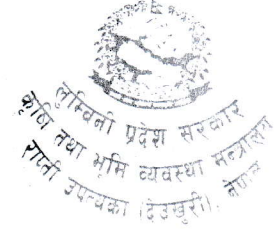 लुम्बिनी प्रदेश सरकार
कृषि तथा भूमि व्यवस्था मन्त्रालय
राप्ती उपत्यका (देउखुरी), नेपाल